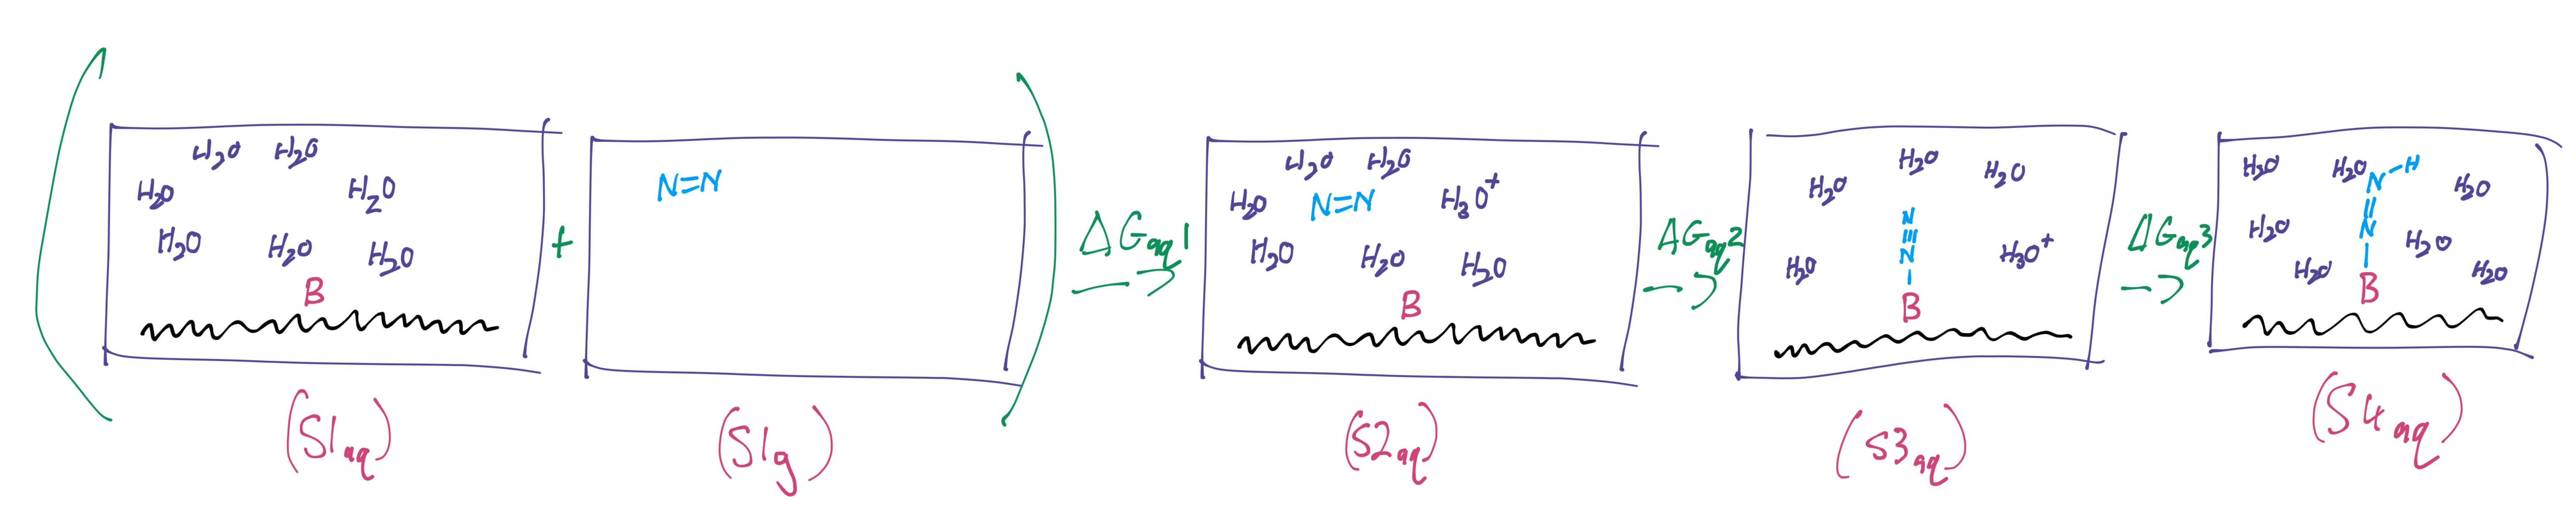 H₂O H₂O
H₂O H₂O
H₂O H₂O H₂O
B
(S1aq)
+
N=N
(S1g)
ΔGaq1
→
H₂O H₂O
H₂O N=N H₃O⁺
H₂O H₂O H₂O
B
(S2aq)
ΔGaq2
→
H₂O
H₂O H₂O
N
N
H₂O H₃O⁺
B
(S3aq)
ΔGaq3
→
H₂O H₂O N-H
H₂O
H₂O N H₂O
H₂O B H₂O
(S4aq)